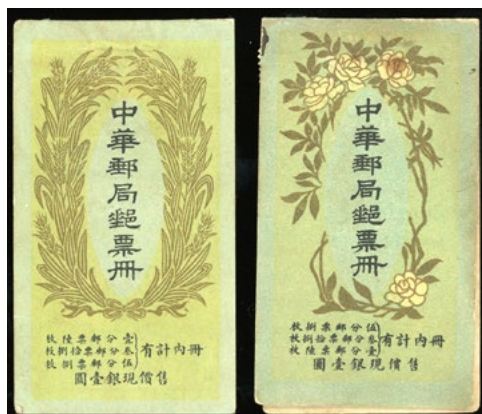 中華郵局郵票冊
冊內計有
壹分郵票陸枚
叁分郵票拾捌枚
伍分郵票捌枚
售價現銀壹圓
中華郵局郵票冊
冊內計有
伍分郵票捌枚
叁分郵票拾捌枚
壹分郵票陸枚
售價現銀壹圓